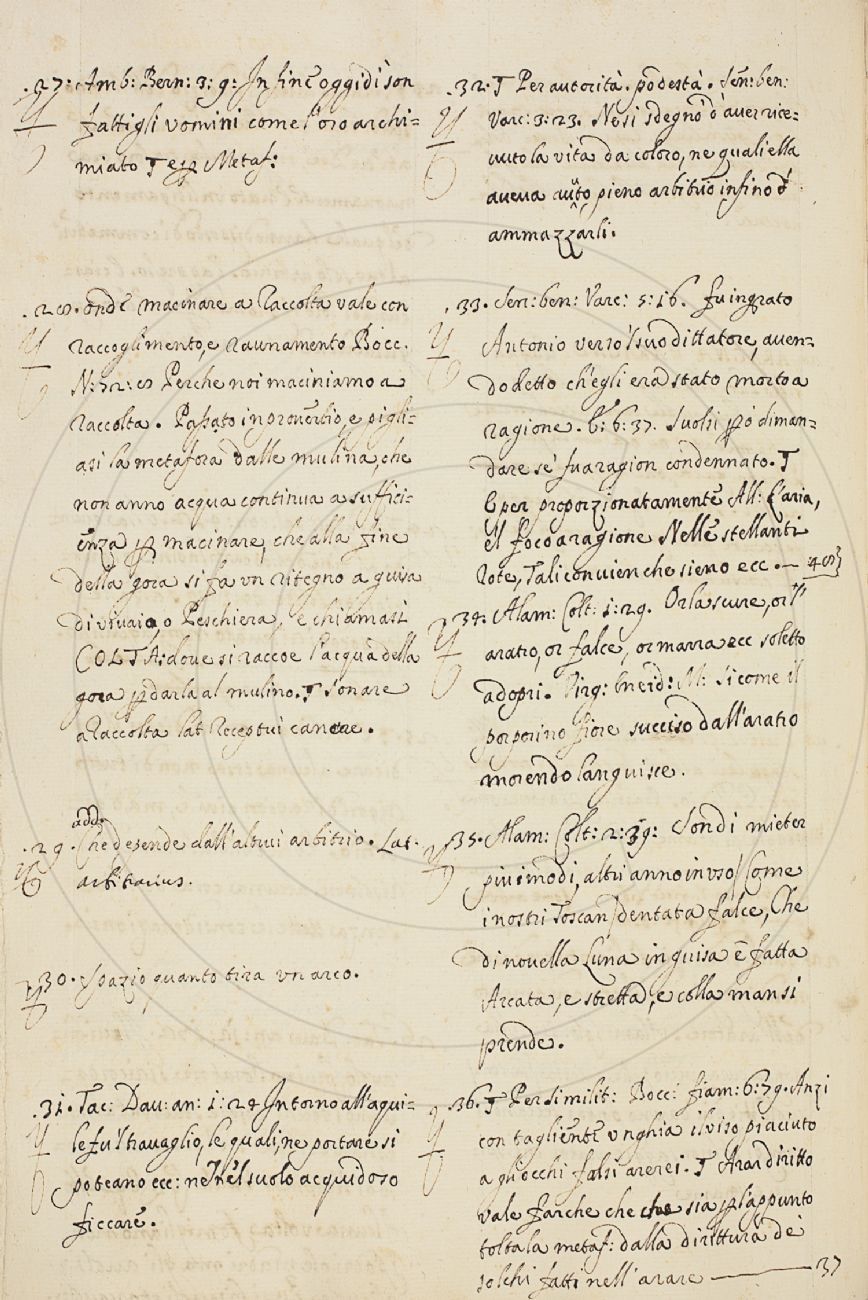 .27: Amb: Bern: 3: 9: In fine oggidì son
fatti gli vomini come l'oro archi=
miato T e p Metaf:
.28. onde macinare a Raccolta vale con
raccoglimento, e raunamento Bocc.
N: 72: 8 Perche noi maciniamo a
raccolta. Passato in proverbio, e pigli=
asi la metafora dalle mulina, che
non anno acqua continua a suffici=
enza p macinare, che alla fine
della gora si fa un ritegno a guisa
di vivaio, o Peschiera, e chiamasi
COLTA: dove si raccoe l'acqua della
gora p darla al mulino. T Sonare
a Raccolta lat Receptui canere.
add
.29. Che depende dall'altrui arbitrio. Lat.
arbitrarius.
.30. Spazio quanto tira un arco.
.31. Tac: Dav: an: 1: 24 Intorno all'aqui=
le fu 'l travaglio, le quali, ne portare si
poteano ecc: ne nel suolo acquidoso
ficcare.
.32. T Per autorità. podestà. Sen: ben:
Varc: 3: 23. Nè si sdegnò d'aver rice=
vuto la vita da coloro, ne quali ella
aveva auto pieno arbitrio infino d'
ammazzarli.
.33. Sen: ben: Varc: 5: 16. fu ingrato
Antonio verso 'l suo dittatore, aven=
do detto ch'egli era stato morto a
ragione. E: 6: 37. Suolsi pò diman=
dare se fu a ragion condennato. T
E per proporzionatamente All: L'aria,
el foco a ragione Nelle stellanti
rote, Tali convien che sieno ecc. —
.34. Alam: Colt: 1: 29. Or la scure, or l'
aratro, or falce, or marra ecc soletto
adopri. Virg: Eneid: M: Sì come il
porporino fiore succiso dall'aratro
morendo languisce.
.35. Alam: Colt: 2: 39: Son di mieter
piu i modi, altri anno in uso / Come
i nostri Toscan / dentata falce, Che
di novella Luna in guisa è fatta
Arcata, e stretta, e colla man si
prende.
.36. T Per similit: Bocc: fiam: 6: 79. Anzi
con tagliente vnghia il viso piaciuto
a gli occhi falsi arerei. T Arar diritto
vale far che che che sia p l'appunto
tolta la metaf: dalla dirittura de
solchi fatti nell'arare — 37